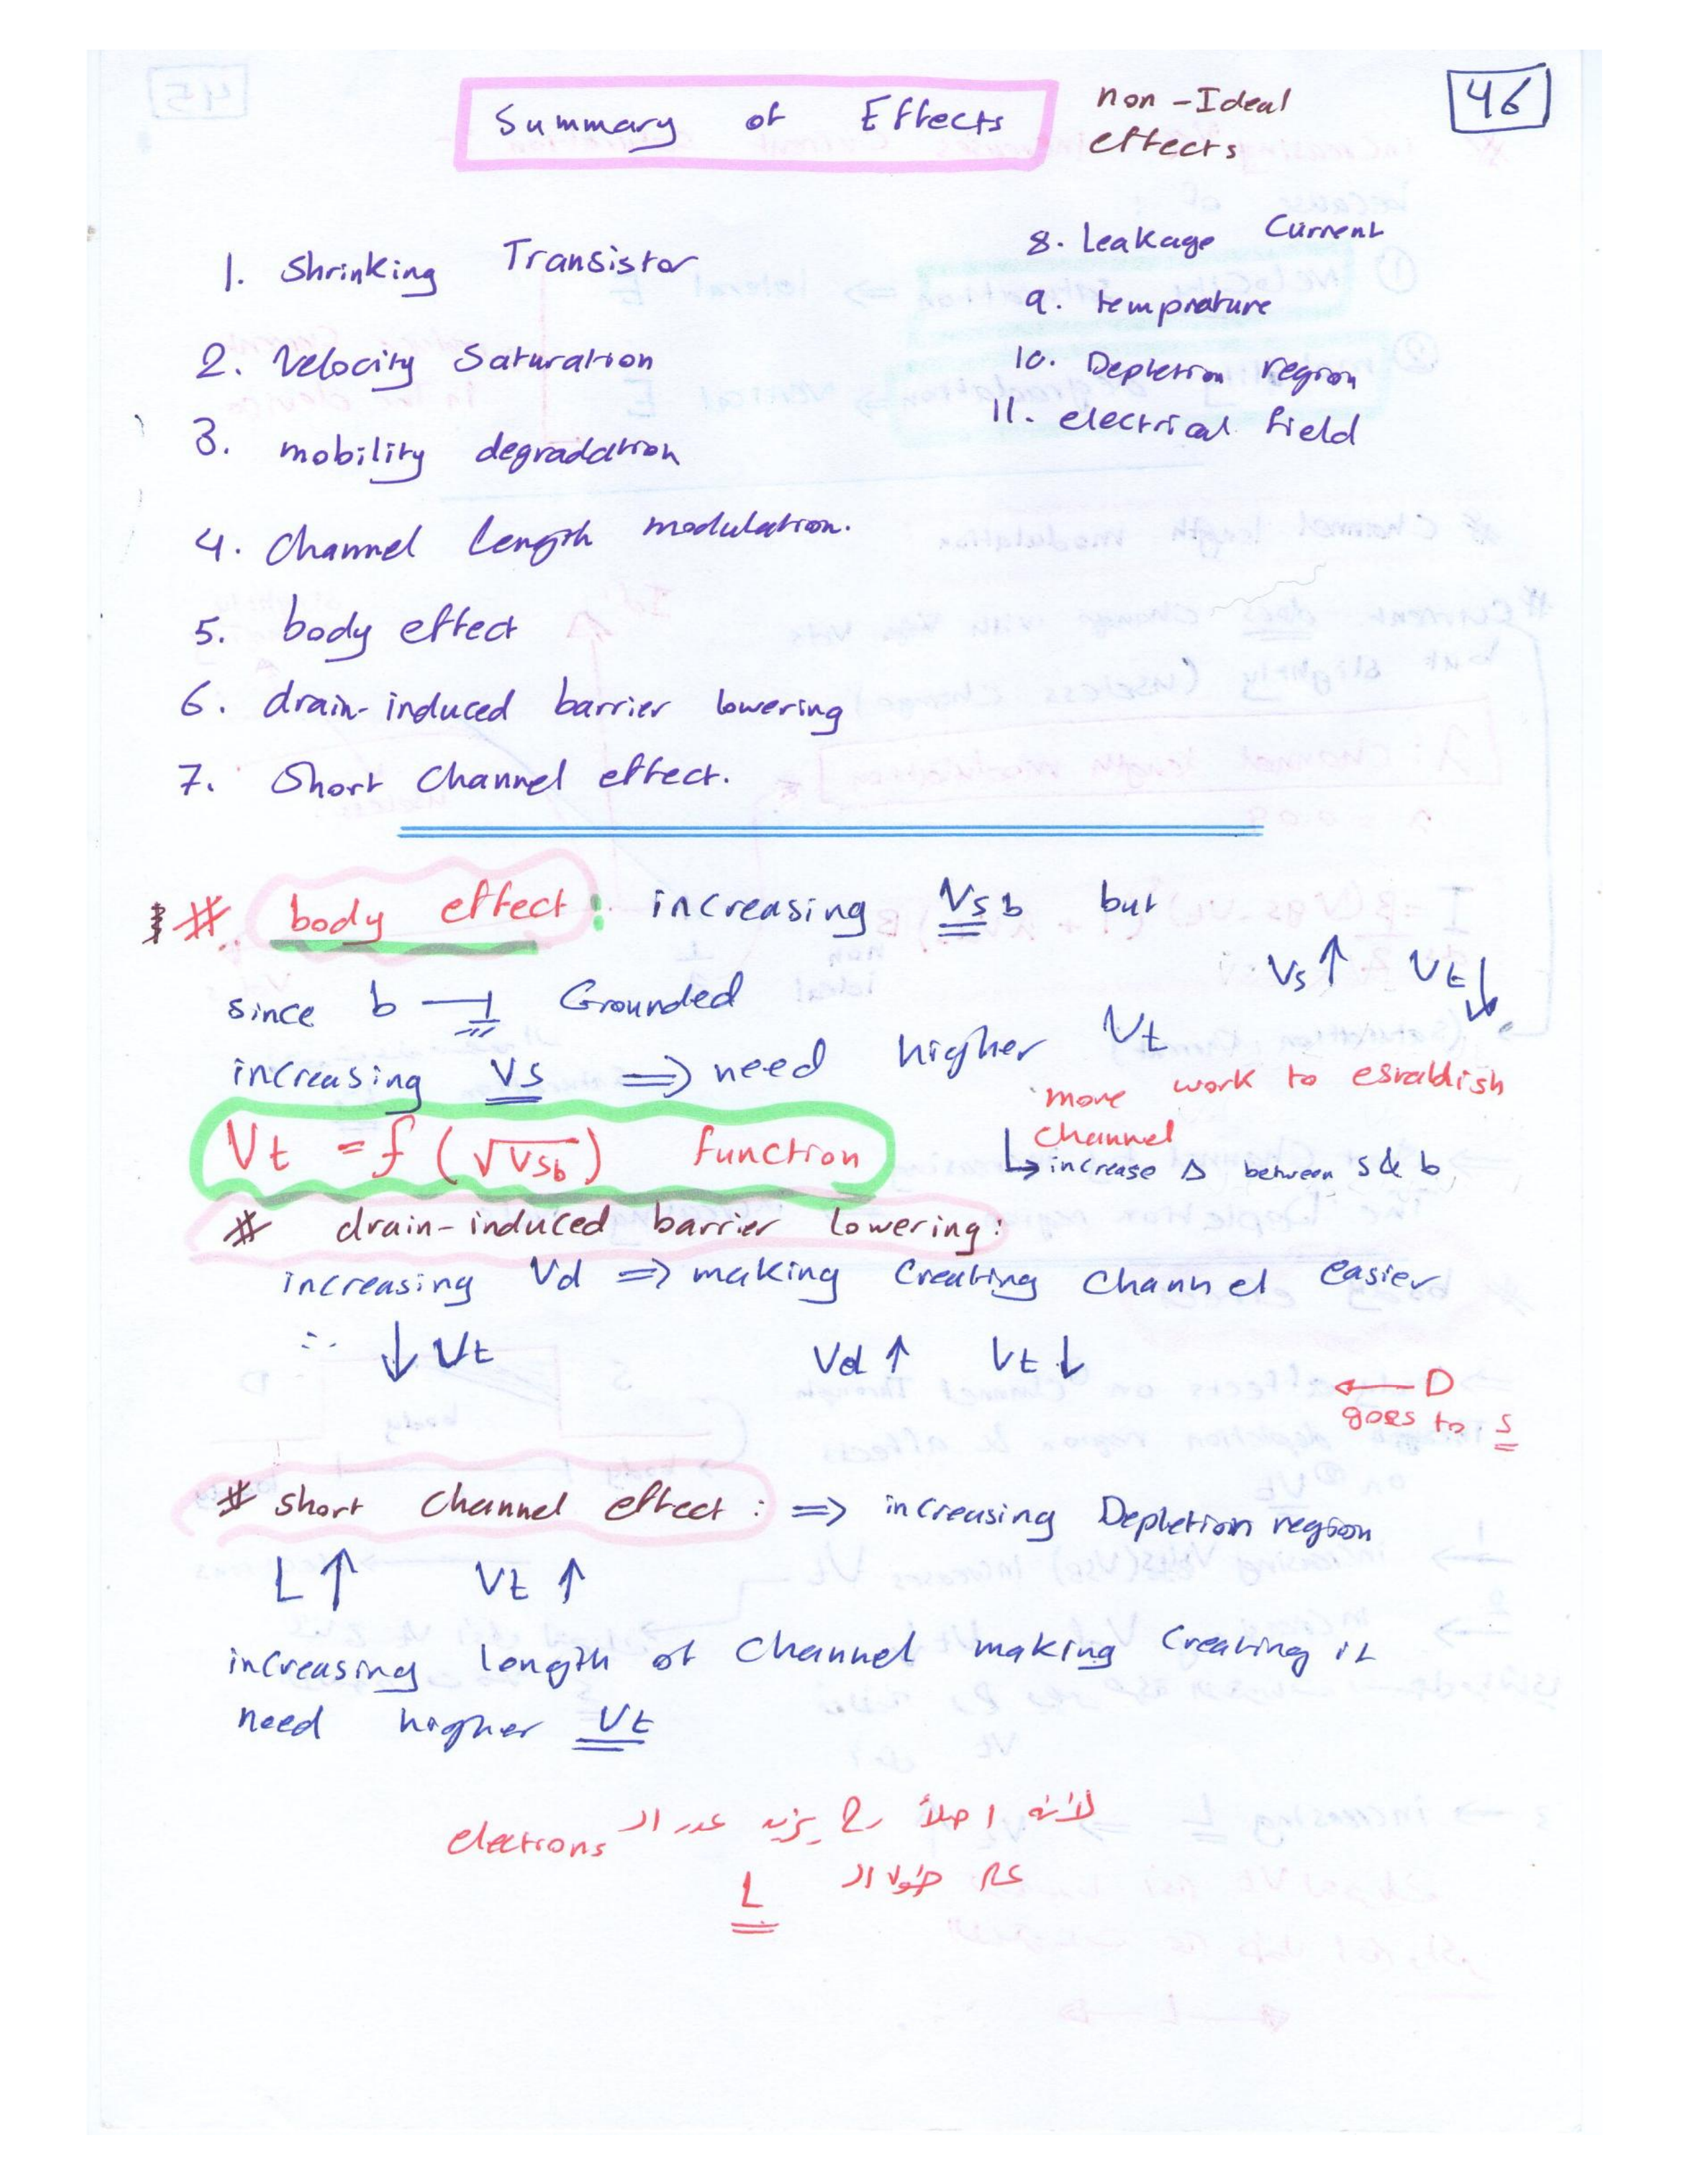 46
Summary of Effects
non-Ideal
effects
1. Shrinking Transistor
2. Velocity Saturation
3. mobility degradation
4. Channel length modulation.
5. body effect
6. drain-induced barrier lowering
7. Short Channel effect.
8. Leakage Current
9. temprature
10. Depletion region
11. electrical field
# body effect : increasing Vsb but
Vs ↑ Vt ↓
since b Grounded
increasing Vs ⇒ need higher Vt
more work to establish
channel
↳ increase Δ between s & b
Vt = f (√Vsb) function
# drain-induced barrier lowering:
increasing Vd ⇒ making Creating Channel easier
∴ ↓ Vt Vd ↑ Vt ↓
← D
goes to s
# short Channel effect : ⇒ increasing Depletion region
L ↑ Vt ↑
increasing length of Channel making Creating it
need higher Vt
لأنه اصلاً رح يزيد عدد الـ electrons
على طول الـ
L